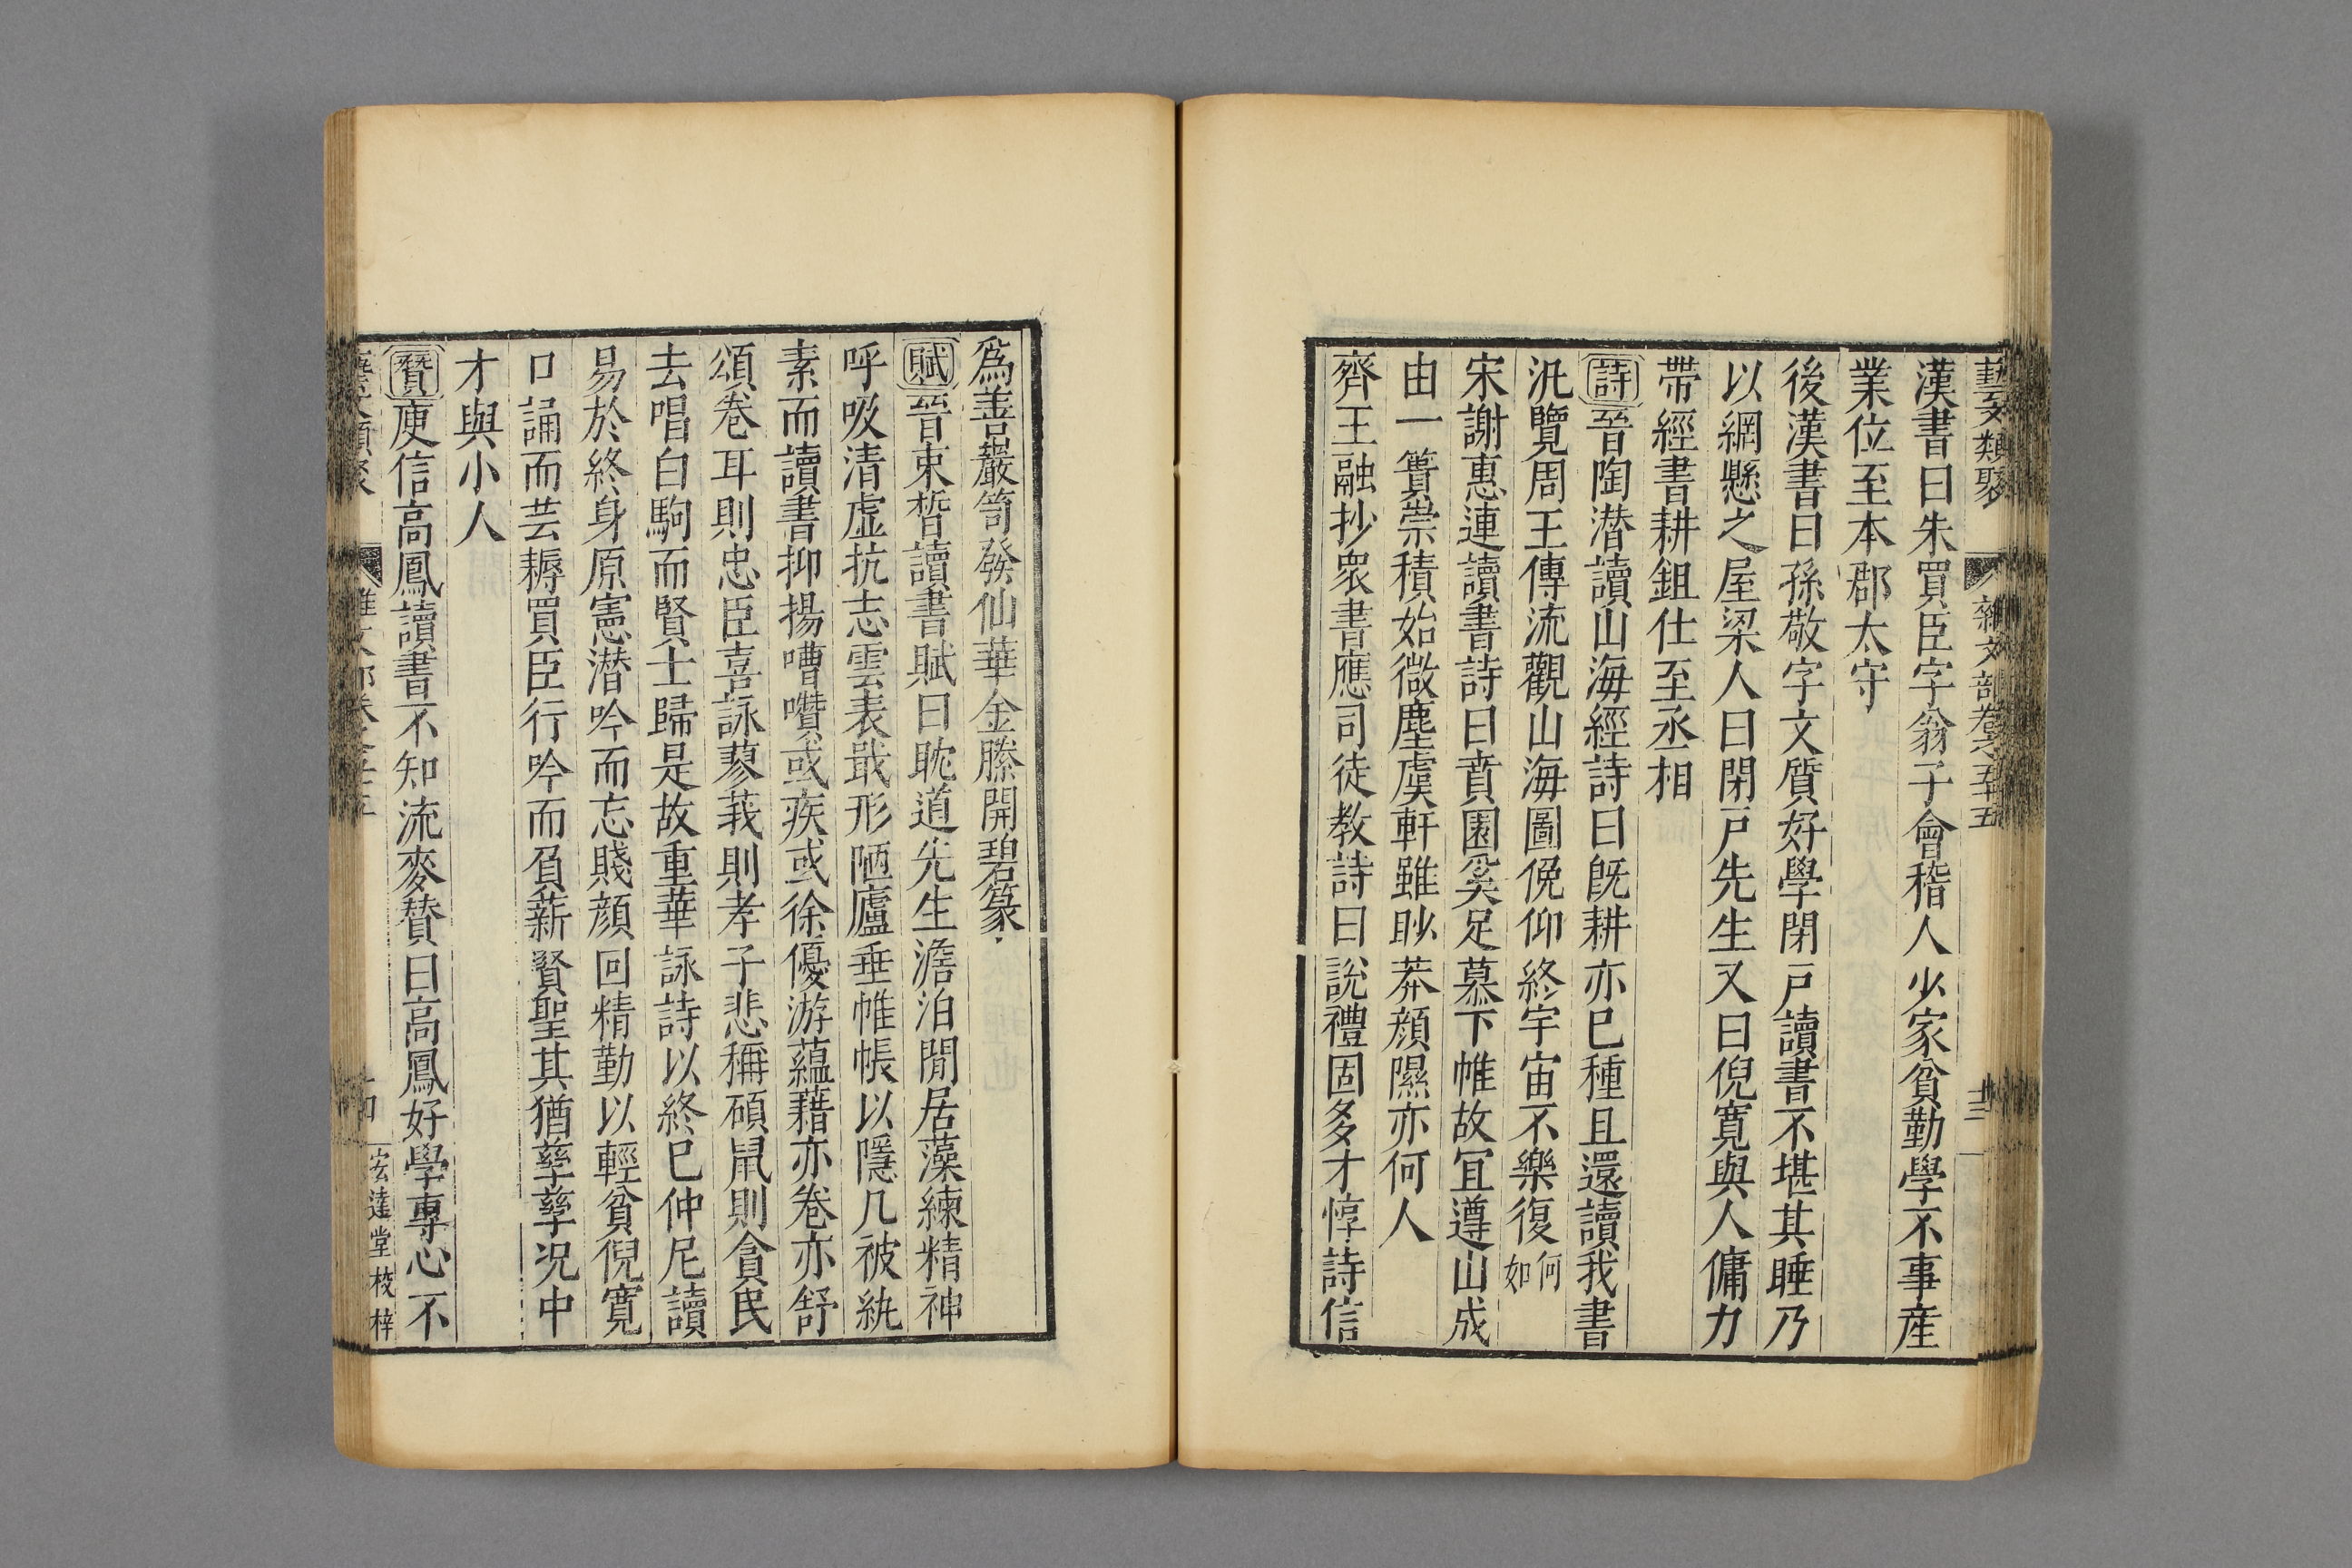 藝文類聚 雜文部卷之五十五 十三
漢書曰朱買臣字翁子會稽人少家貧勤學不事産
業位至本郡太守
後漢書曰孫敬字文質好學閉戸讀書不堪其睡乃
以繩懸之屋梁人曰閉戸先生又曰倪寬與人傭力
帶經書耕鉏仕至丞相
詩晉陶潜讀山海經詩曰既耕亦巳種且還讀我書
汎覽周王傳流觀山海圖俛仰終宇宙不樂復何如
宋謝惠連讀書詩曰賁園奚足慕下帷故冝遵山成
由一簣崇積始微塵虞軒雖眇莽顔隰亦何人
齊王融抄衆書應司徒教詩曰說禮固多才惇詩信
爲善巖笥發仙華金縢開碧篆
賦晉束晳讀書賦曰耽道先生澹泊閒居藻練精神
呼吸清虚抗志雲表戢形陋廬垂帷帳以隱几被紈
素而讀書抑揚嘈囋或疾或徐優游蘊藉亦卷亦舒
頌卷耳則忠臣喜詠蓼莪則孝子悲稱碩鼠則貪民
去唱白駒而賢士歸是故重華詠詩以終巳仲尼讀
易於終身原憲潜吟而忘賤顔回精勤以輕貧倪寬
口誦而芸耨買臣行吟而負薪賢聖其猶孳孳况中
才與小人
贊庾信高鳳讀書不知流麥贊曰高鳳好學專心不
藝文類聚 雜文部卷之五十五 十四 宏達堂校梓